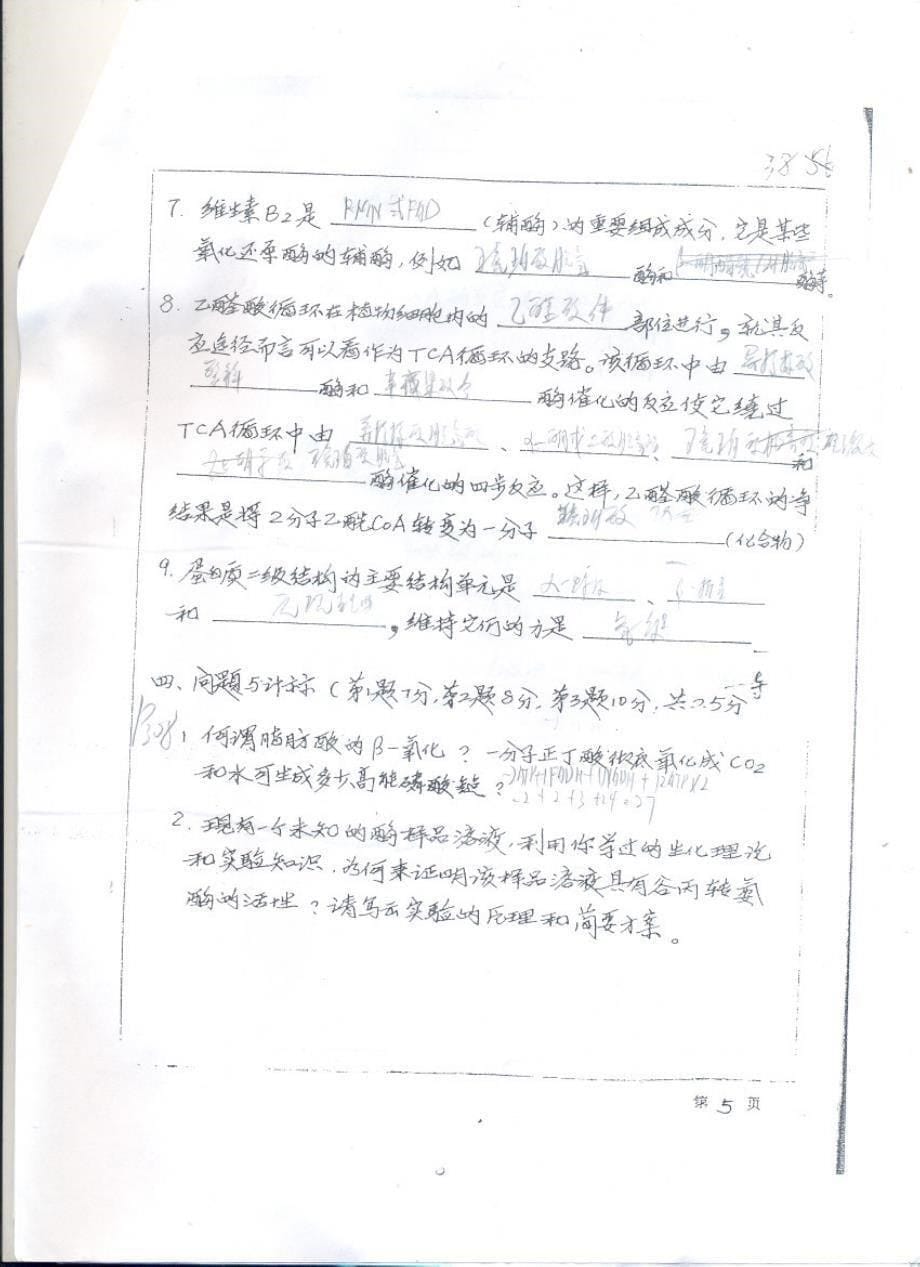 7. 维生素B2是 FMN或FAD (辅酶)的重要组成成分,它是某些
氧化还原酶的辅酶,例如 琥珀酸脱氢 酶和 酶等。
8. 乙醛酸循环在植物细胞内的 乙醛酸体 部位进行,就其反
应途径而言可以看作为TCA循环的支路。该循环中由 异柠檬酸
裂解 酶和 苹果酸合 酶催化的反应使它绕过
TCA循环中由 异柠檬酸脱氢酶、α-酮戊二酸脱氢酶、琥珀 和
琥珀酸脱氢 酶催化的四步反应。这样,乙醛酸循环的净
结果是将2分子乙酰CoA转变为一分子 琥珀酸 (化合物)
9. 蛋白质二级结构的主要结构单元是 α-螺旋、β-折叠
和 ,维持它们的力是 氢键
四、问题与计算(第1题7分,第2题8分,第3题10分,共25分
P308 1 何谓脂肪酸的β-氧化?一分子正丁酸彻底氧化成CO2
和水可生成多少高能磷酸键?
-2+2+3+24=27
2. 现有一个未知的酶样品溶液,利用你学过的生化理论
和实验知识,为何来证明该样品溶液具有谷丙转氨
酶的活性?请写出实验的原理和简要方案。
第 5 页